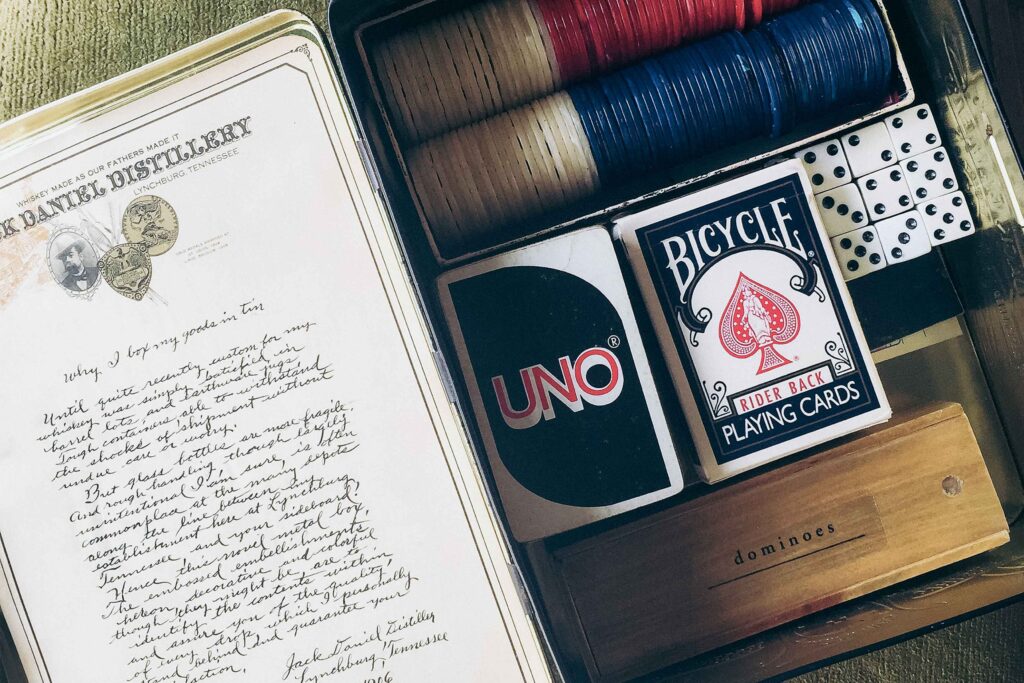 WHISKEY MADE AS OUR FATHERS MADE IT
K DANIEL DISTILLERY
LYNCHBURG TENNESSEE
Why I box my goods in tin
Until quite recently custom for my
whiskey was simply satisfied in
barrel lots and Earthware jugs
Tough containers able to withstand
the shocks of shipment without
undue care or worry.
But glass bottles are more fragile.
And rough handling though largely
unintentional I am, sure, is often
commonplace at the many depots
along the line between my
establishment here at Lynchburg,
Tennessee, and your sideboard.
Hence this novel metal box.
The embossed embellishments
hereon, decorative and colorful
though they might be, are to
identify the contents within
and assure you of the quality
of every drop which I personally
stand behind and guarantee your
Jack Daniel Distiller
Lynchburg, Tennessee
1906
UNO®
BICYCLE®
RIDER BACK
PLAYING CARDS
dominoes